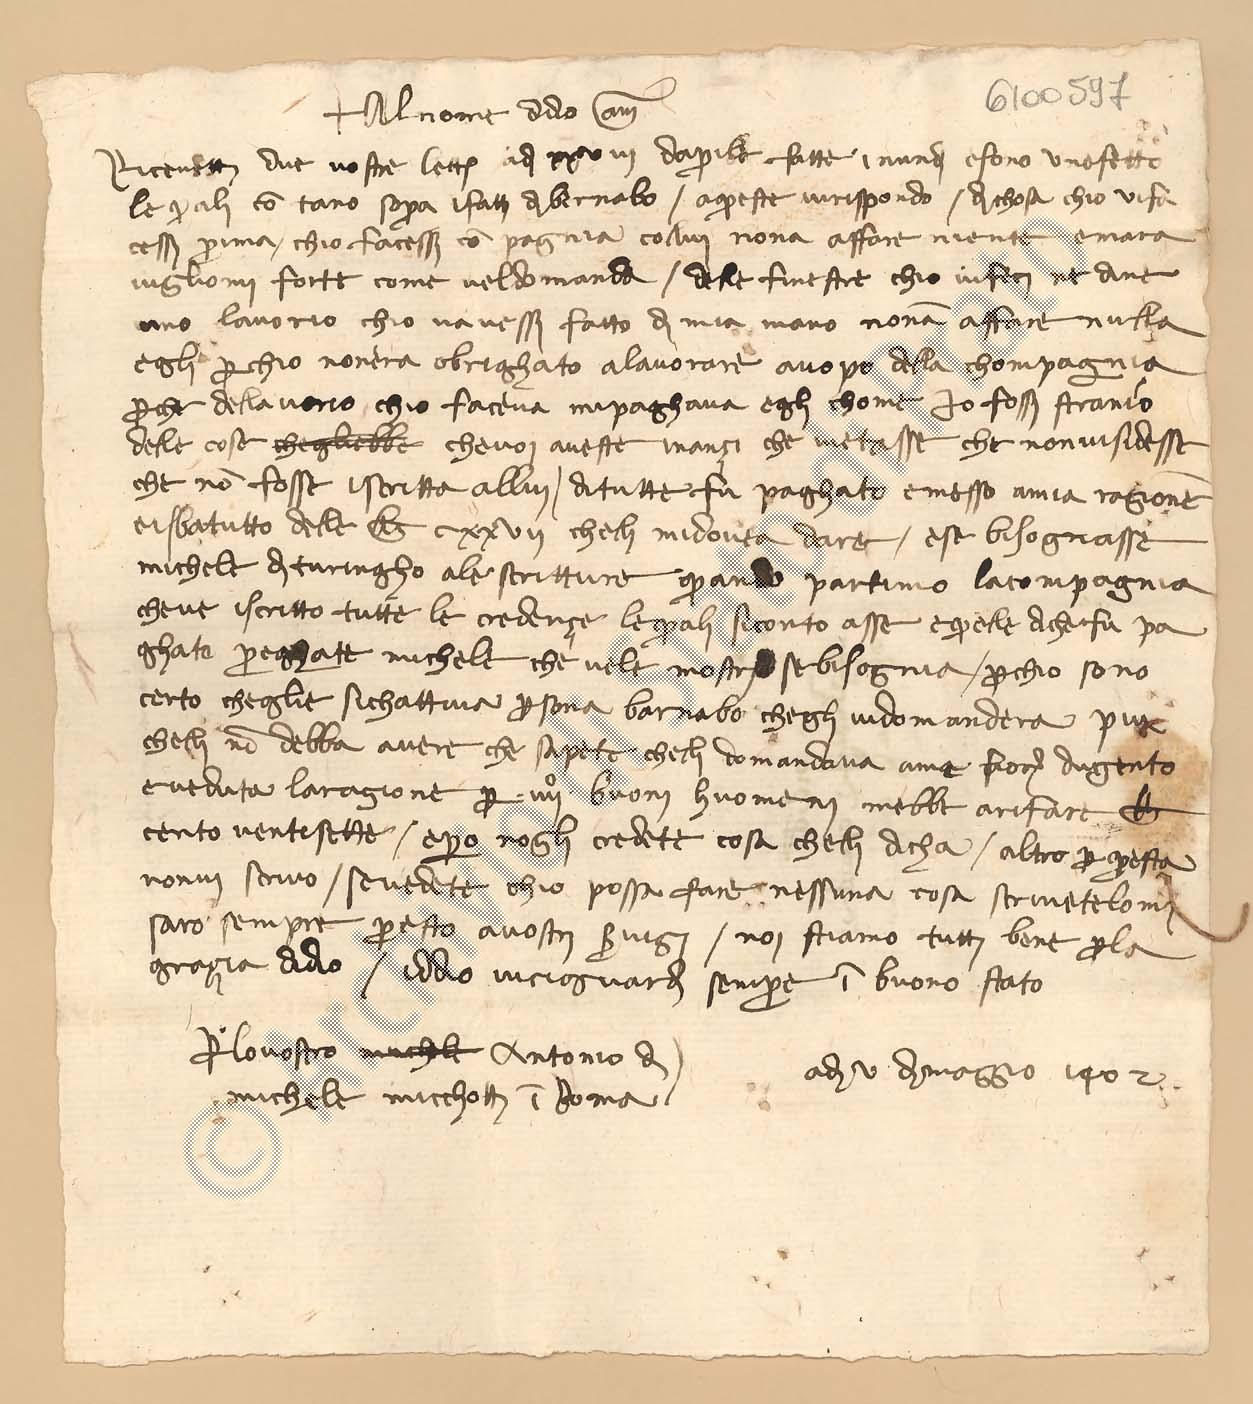 6100597
+ Al nome didio am̄
Ricevetti due vostre lettere adi xxviii daprile fatte inundi esono vnefetto
le quali cō tano sopra ifatti di bernabo / aqueste virispondo / di chosa chio vifa
cessi prima / chio facessi cō pagnia collui nona affare niente emara
vigliomi forte come veldomanda / delle finestre chio vifeci ne dine
uno lavorio chio vavessi fatto di mia mano nonā affare nulla
egli perchio nonera obrighato alavorare avopo della chompagnia
perche dellavorio chio faceva mipaghava egli chome Io fossi stranio
delle cose chegliebbe chevoi aveste inançi che metasse che nonvisidesse
che nō fosse iscritta allui / ditutte fu paghato emesso amia ragione
eisbatutto delle cxxvii chelli midovea dare / ese bisogniasse
michele di turingho ale scritture quando partimo lacompagnia
cheve iscritto tutte le credençe lequali siconto asse equelle dichefu pa
ghato preghate michele che vele mostri sebisognia / perchio sono
certo cheglie sichattiva persona barnabo chegli vidomandera piue
chelli nō debba avere che sapete chelli domandava ame fiorini dugento
eveduta laragione per iiiiº buoni huomeni mebbe arifare
cento ventisette / epero nogli credete cosa chelli dicha / altro per questa
nonvi scrivo / sevedete chio possa fare nessuna cosa scrivetelomi
saro sempre presto avostri servigi / noi stiamo tutti bene perla
grazia didio / iddio viciguardi sempre ī buono stato
Perlovostro michele Antonio di
michele micchotti ī Roma
adi v di maggio 1402
©